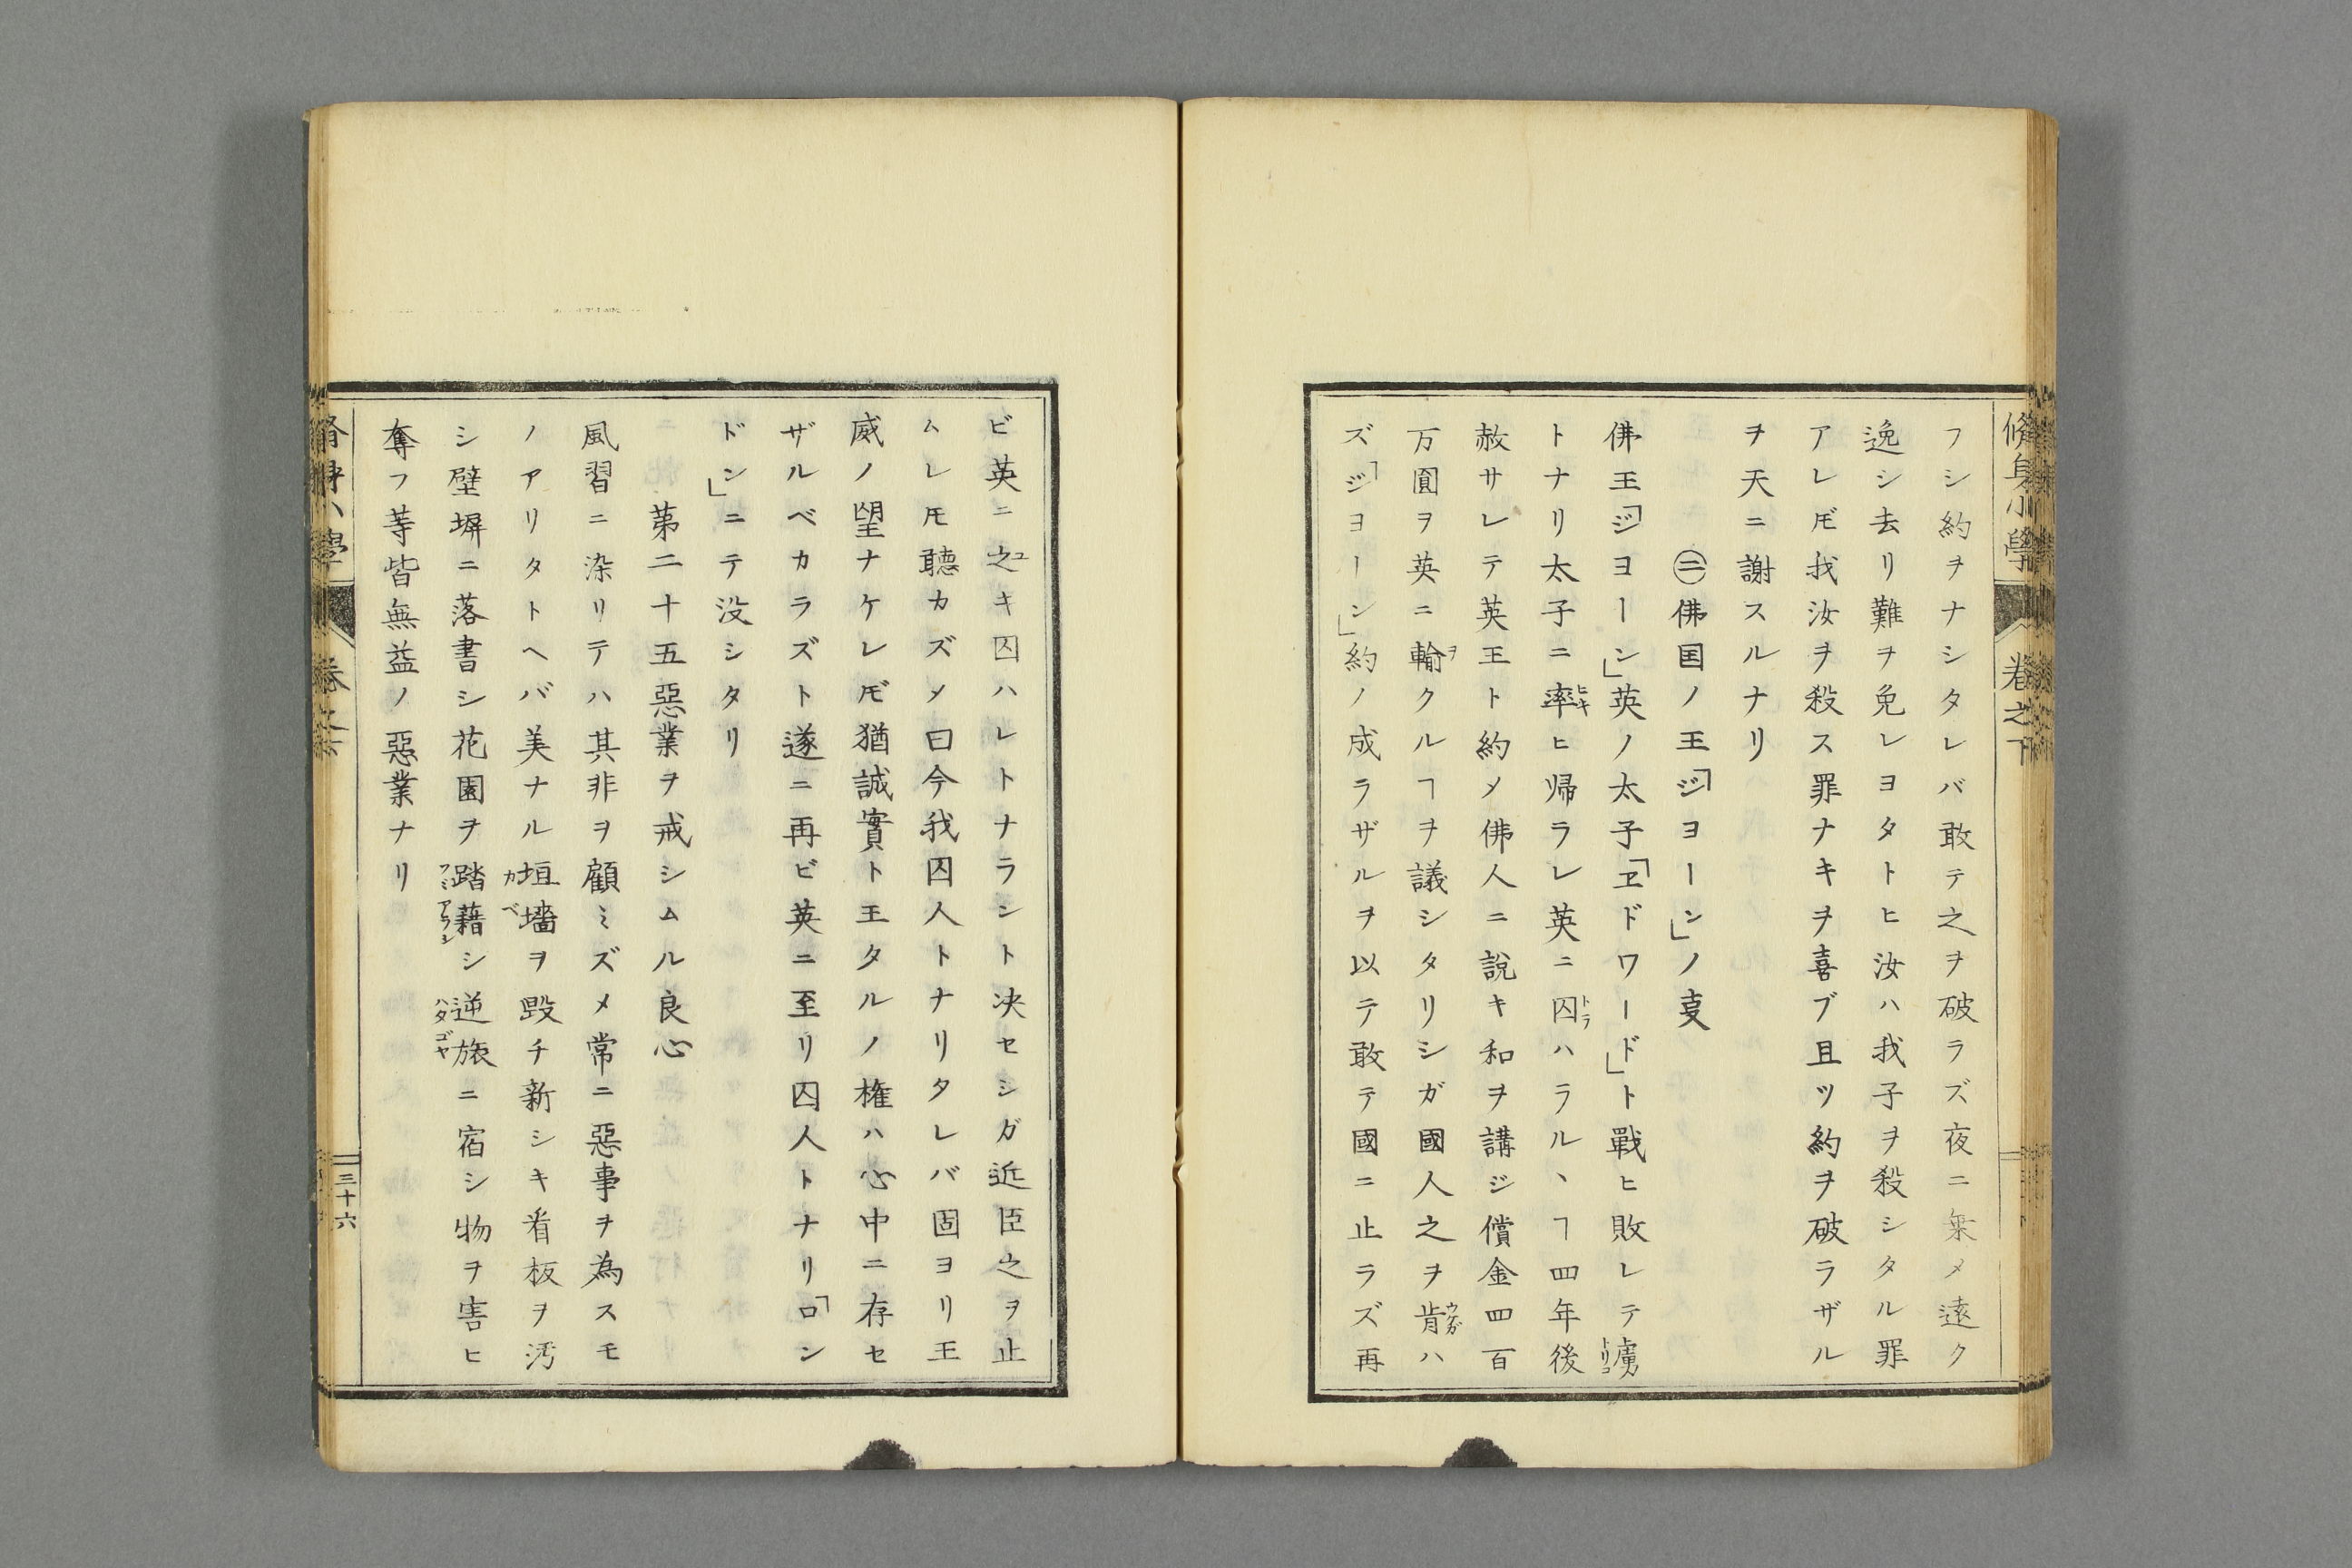 脩身小學 卷之下
フシ約ヲナシタレバ敢テ之ヲ破ラズ夜ニ乗メ遠ク
逸シ去リ難ヲ免レヨタトヒ汝ハ我子ヲ殺シタル罪
アレ𪜈我汝ヲ殺ス罪ナキヲ喜ブ且ツ約ヲ破ラザル
ヲ天ニ謝スルナリ
㊁佛国ノ王「ジヨーン」ノ叓
佛王「ジヨーン」英ノ太子「ヱドワード」ト戰ヒ敗レテ虜トリコ
トナリ太子ニ率ヒキヒ帰ラレ英ニ囚トラハラルヽヿ四年後
赦サレテ英王ト約メ佛人ニ説キ和ヲ講ジ償金四百
万圓ヲ英ニ輸ヲクルヿヲ議シタリシガ國人之ヲ肯ウケガハ
ズ「ジヨーン」約ノ成ラザルヲ以テ敢テ國ニ止ラズ再
ビ英ニ之ユキ囚ハレトナラント决セシガ近臣之ヲ止
ムレ𪜈聽カズメ曰今我囚人トナリタレバ固ヨリ王
威ノ望ナケレ𪜈猶誠實ト王タルノ権ハ心中ニ存セ
ザルベカラズト遂ニ再ビ英ニ至リ囚人トナリ「ロン
ドン」ニテ没シタリ
苐二十五惡業ヲ戒シムル良心
風習ニ染リテハ其非ヲ顧ミズメ常ニ惡事ヲ為スモ
ノアリタトヘバ美ナル垣墻カベヲ毀チ新シキ看板ヲ汚
シ壁塀ニ落書シ花園ヲ踏藉フミアラシシ逆旅ハタゴヤニ宿シ物ヲ害ヒ
奪フ等皆無益ノ惡業ナリ
卷之下
三十六